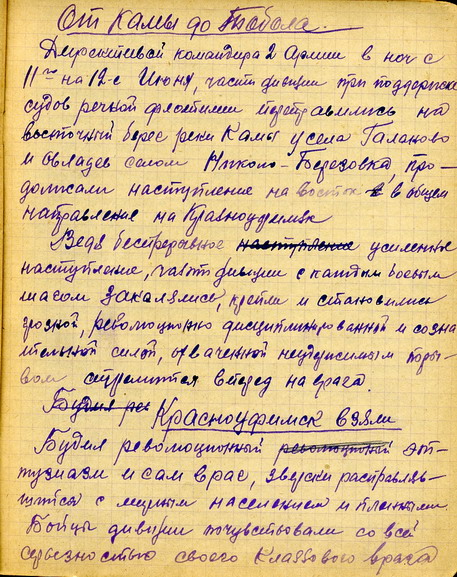 От Камы до Тобола.
Директивой командира 2 Армии в ноч с
11го на 12-е Июня, части дивизии при поддержке
судов речной флотилии переправились на
восточный берег реки Камы у села Галаново
и овладев селом Николо-Березовка, про-
должали наступление на восток в в общем
направление на Красноуфимск
Ведя беспрерывное наступление усиленное
наступление, части дивизии с каждым боевым
часом закалялись, крепли и становились
грозной, революционно дисциплинированной и созна
тельной силой, охваченной неудержимым поры-
вом стремится вперед на врага.
Будил ре Красноуфимск взяли
Будил революционный революционной энт-
тузиазм и сам враг, зверски расправляв-
шийся с мирным населением и пленными.
Бойцы дивизии почувствовали со всей
серьезностью своего классового врага